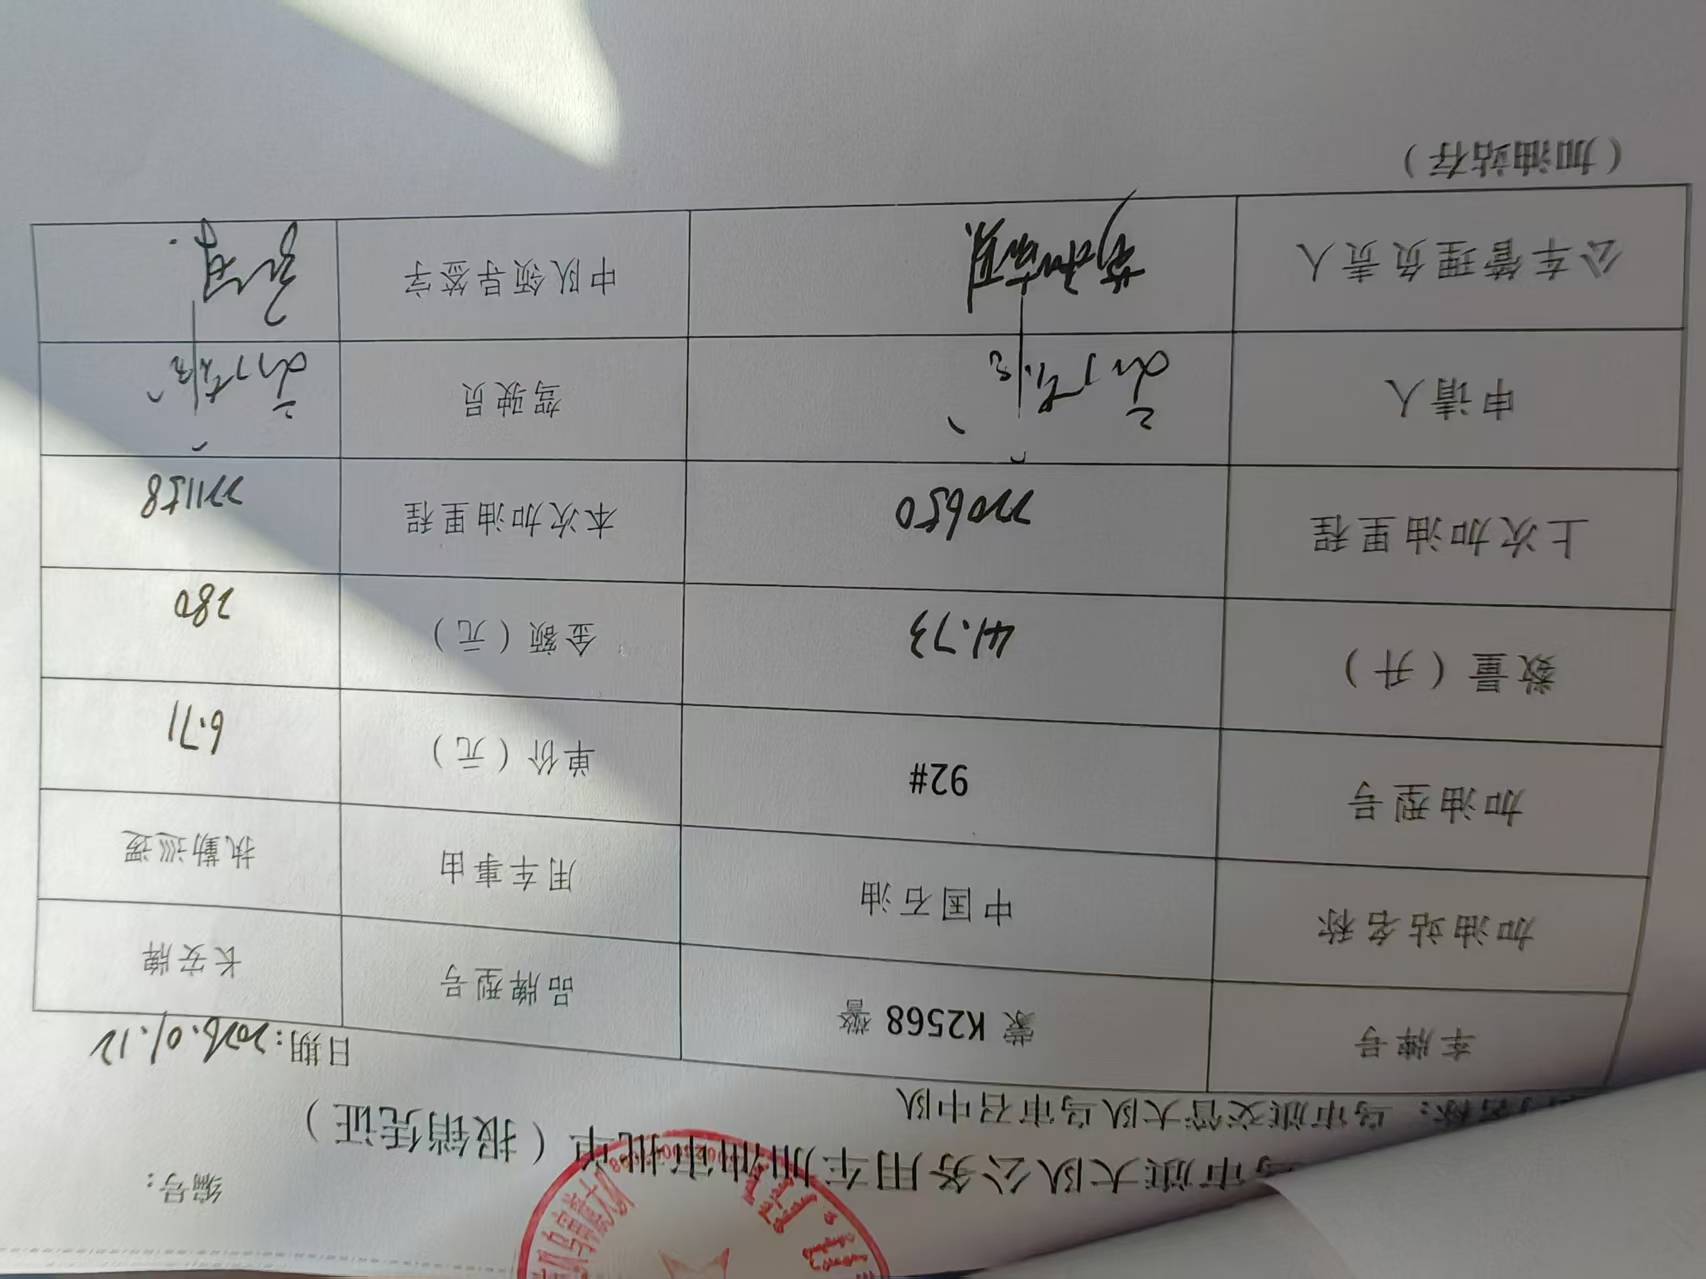 编号：
乌审旗大队公务用车加油审批单（报销凭证）
名称：乌审旗交管大队乌审召中队
日期：2026.01.12
车牌号 蒙 K2568 警 品牌型号 长安牌
加油站名称 中国石油 用车事由 执勤巡逻
加油型号 92# 单价（元） 6.71
数量（升） 41.73 金额（元） 280
上次加油里程 220650 本次加油里程 221158
申请人 驾驶员
公车管理负责人 中队领导签字
（加油站存）